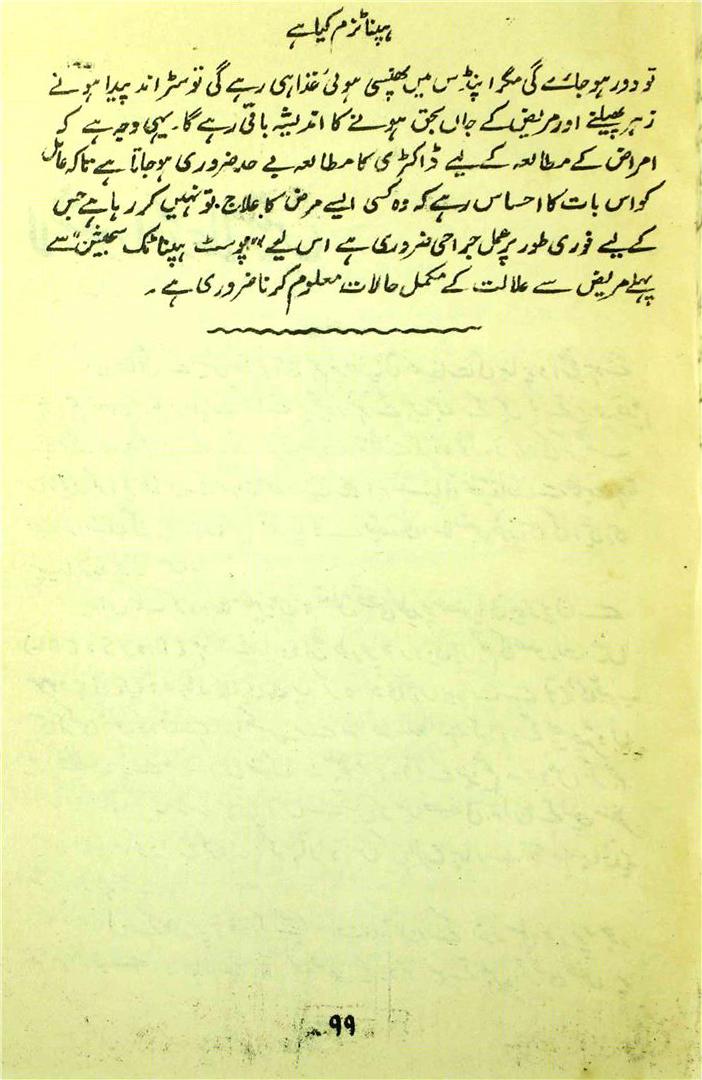 ہپناٹزم کیا ہے
تو دور ہو جائے گی مگر اپنڈس میں پھنسی ہوئی غذا ہی رہے گی تو سڑاند پیدا ہونے
زہر پھیلنے اور مریض کے جاں بحق ہونے کا اندیشہ باقی رہے گا۔ یہی وجہ ہے کہ
امراض کے مطالعہ کے لیے ڈاکٹری کا مطالعہ بے حد ضروری ہو جاتا ہے تاکہ عامل
کو اس بات کا احساس رہے کہ وہ کسی ایسے مرض کا علاج تو نہیں کر رہا ہے جس
کے لیے فوری طور پر عمل جراحی ضروری ہے اس لیے "پوسٹ ہپناٹک سجیشن" سے
پہلے مریض سے علالت کے مکمل حالات معلوم کرنا ضروری ہے ۔
۹۹